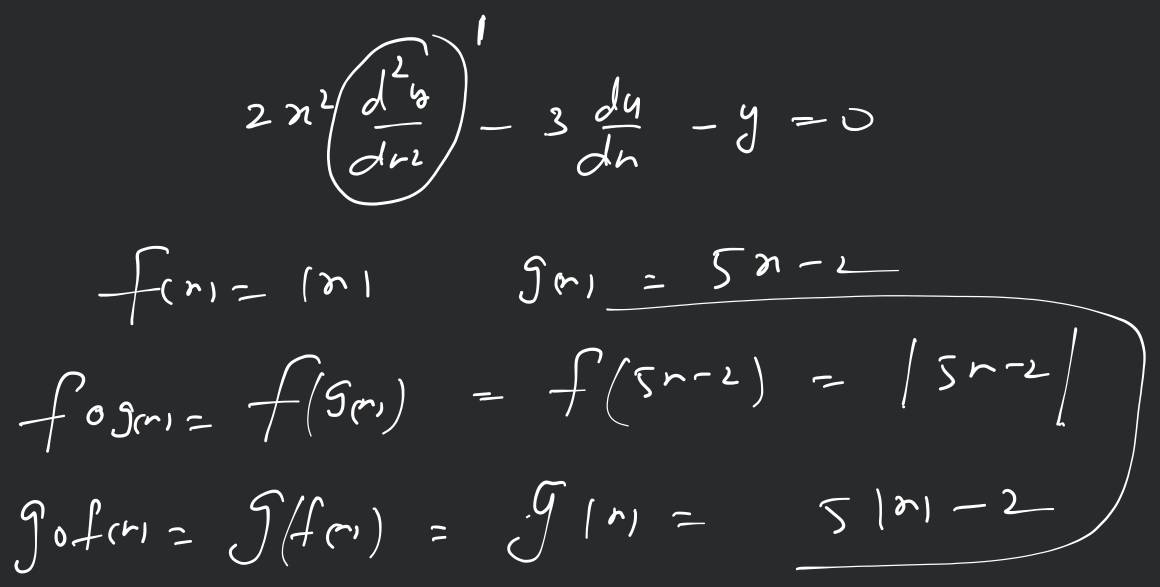 2x²(d²y/dx²)¹ - 3 dy/dx - y = 0
f(x) = |x| g(x) = 5x-2
fog(x) = f(g(x)) = f(5x-2) = |5x-2|
gof(x) = g(f(x)) = g|x| = 5|x|-2